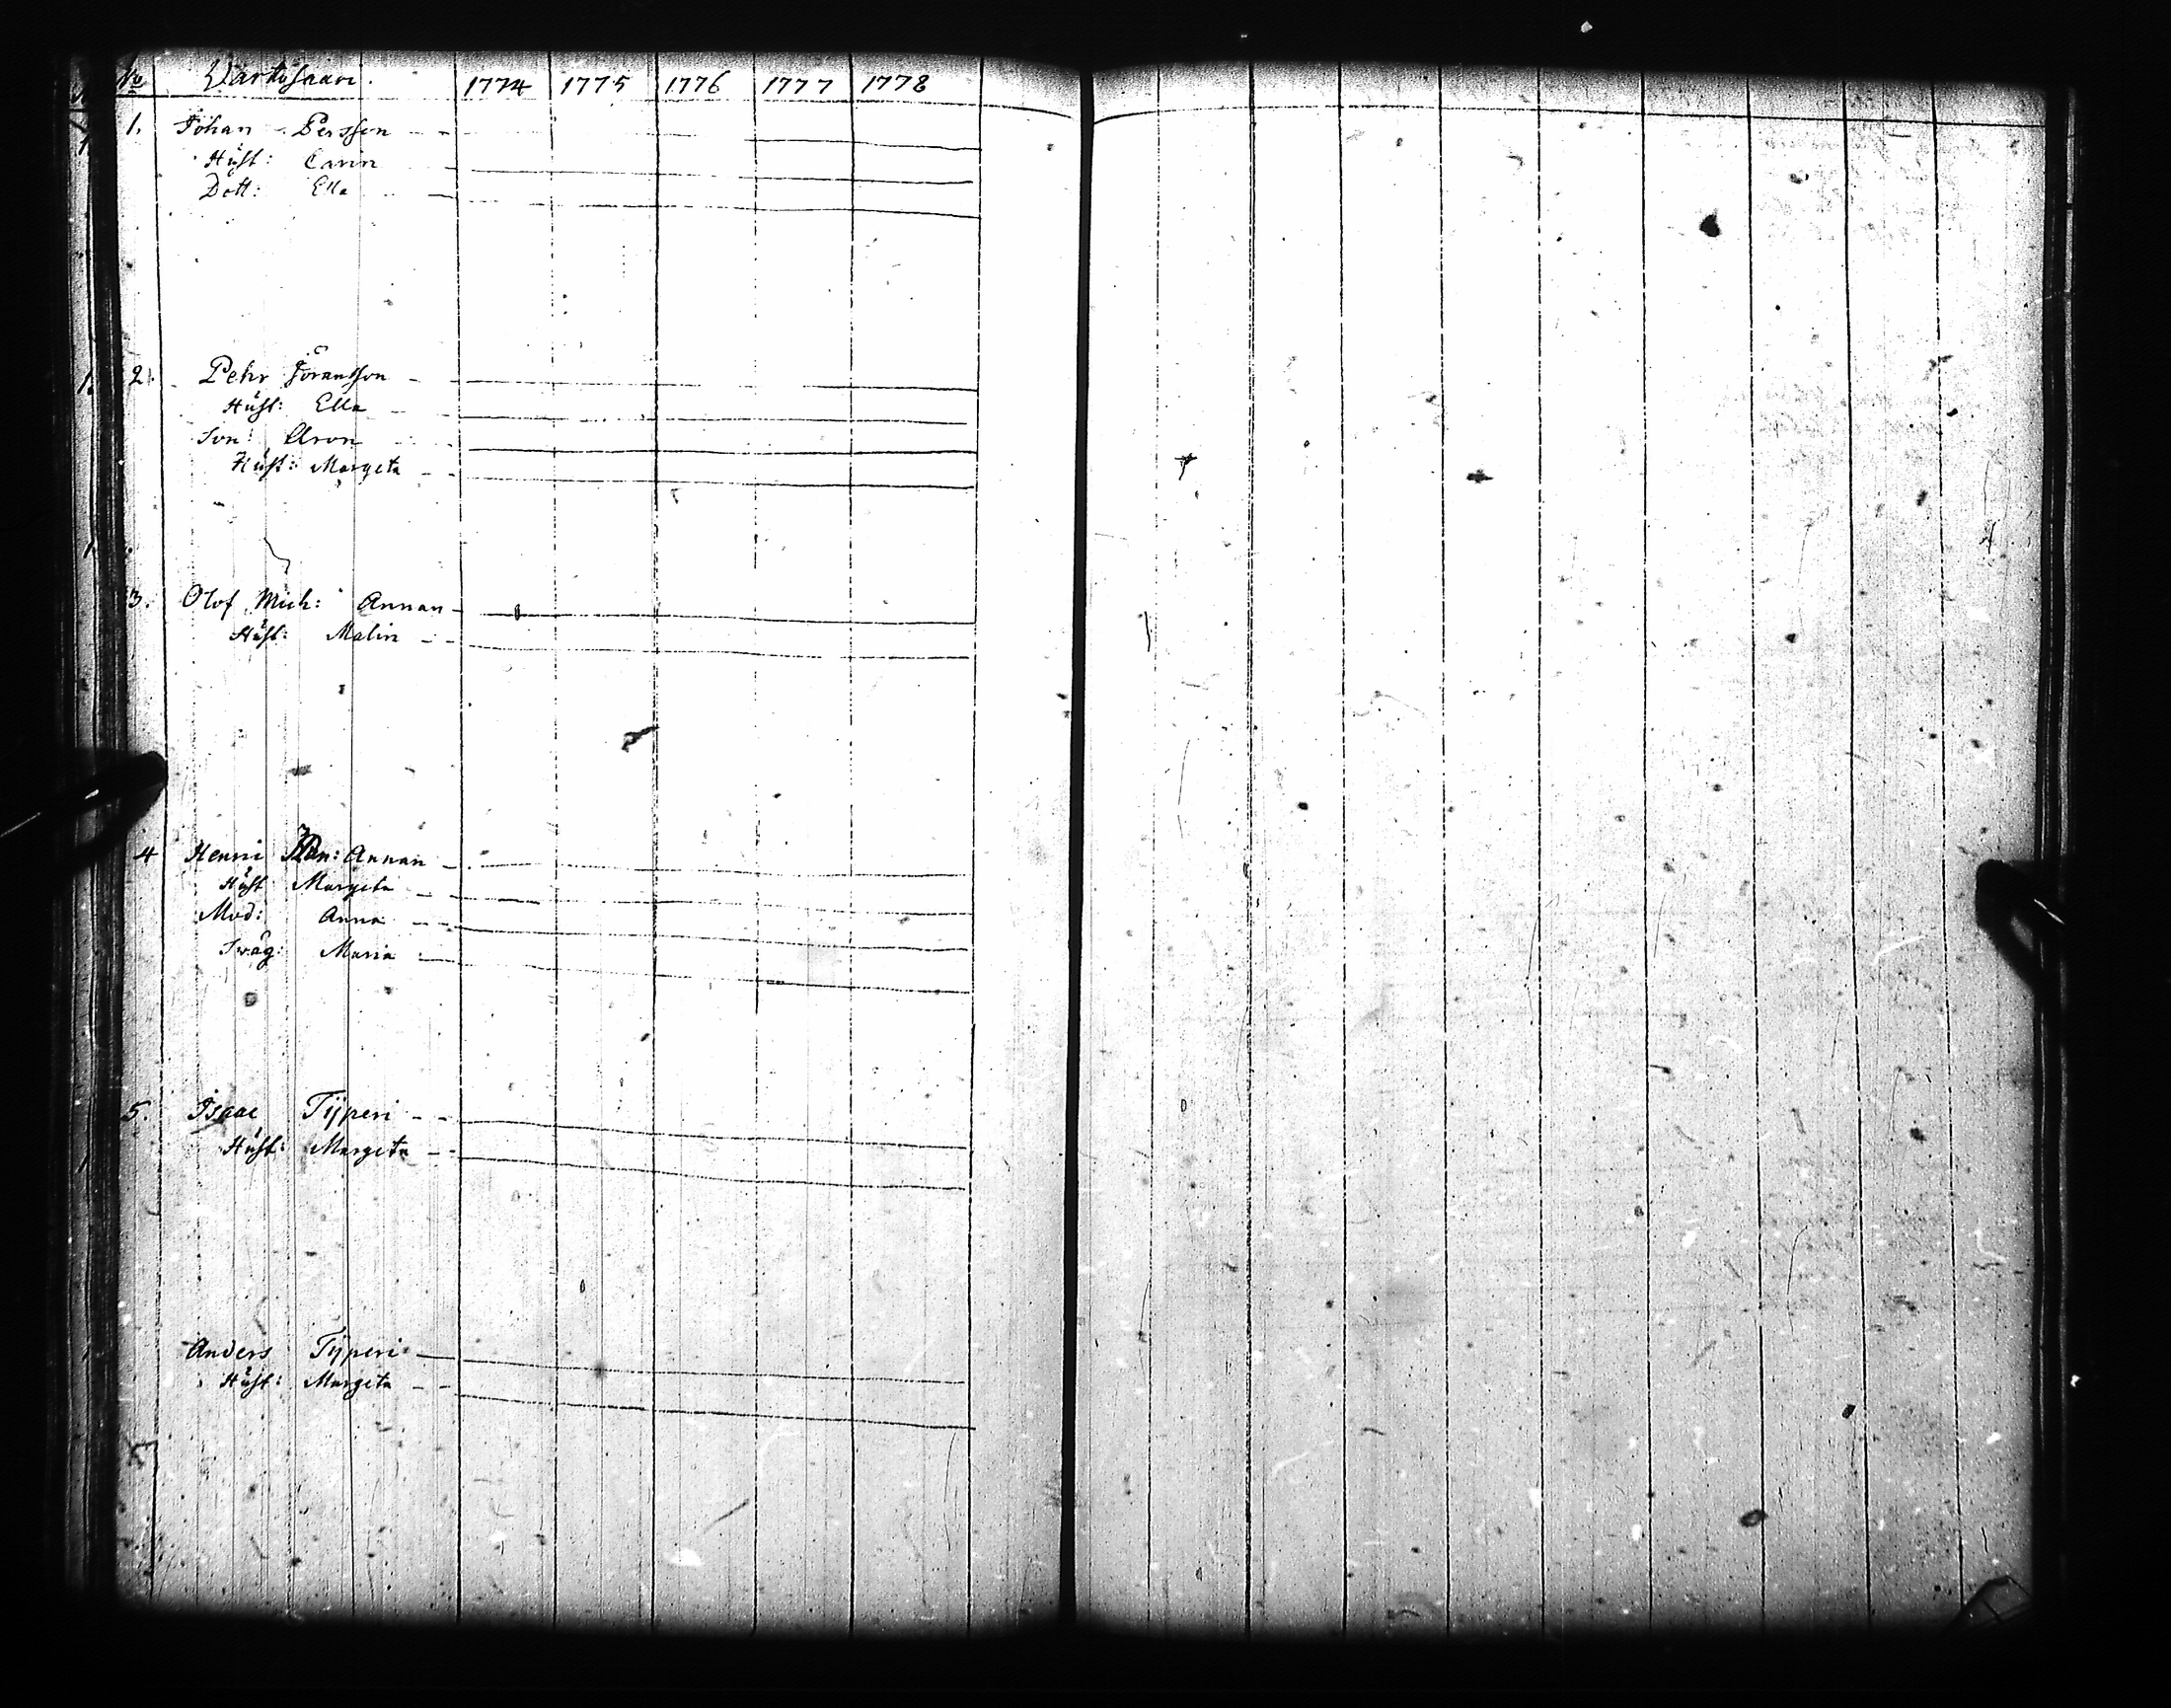 No Vartosaari. 1774 1775 1776 1777 1778
1. Johan Persson
Hust: Carin
Dott: Ella
2. Pehr Göransson
Hust: Ella
Son: Aron
Hust: Margeta
3. Olof Mich: Annan
Hust: Malin
4 Henri Annan
Hust Margeta
Mod: Anna
Swåg: Maria
5. Isaac Tijperi
Hust: Margeta
Anders Tijperi
Hust: Margeta